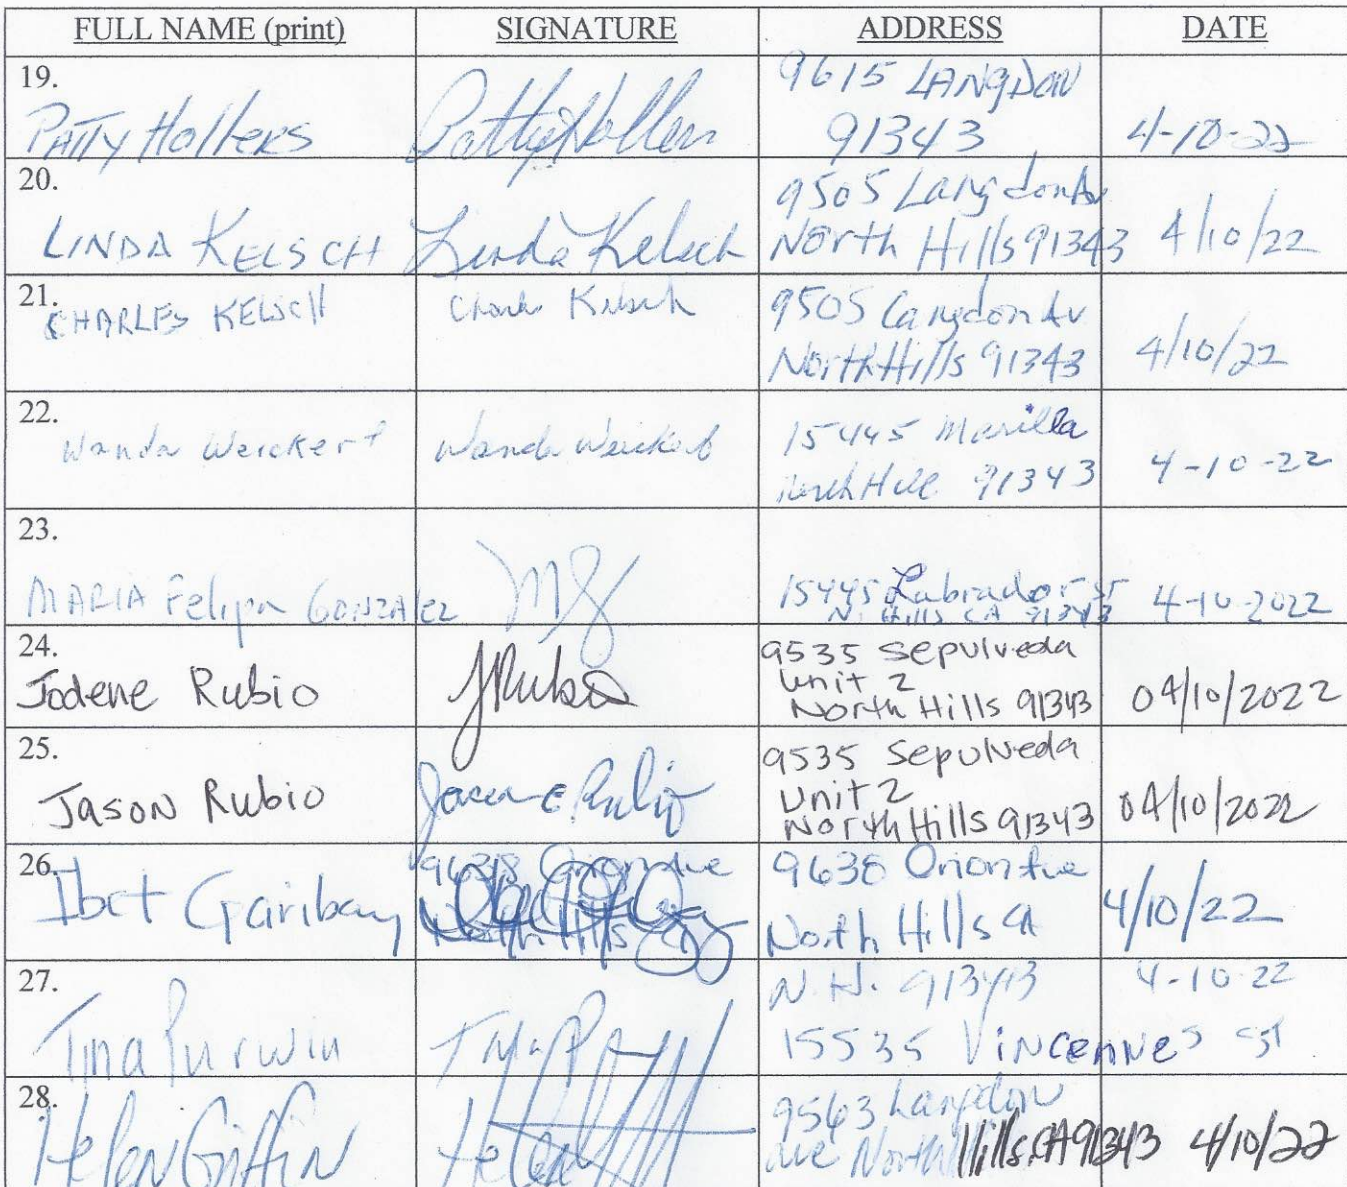 FULL NAME (print) SIGNATURE ADDRESS DATE
19.
9615 LANGDON
PATTY Hollers Patty Hollers 91343 4-10-22
20.
9505 Langdon Av
LINDA KELSCH Linda Kelsch North Hills 91343 4/10/22
21.
CHARLES KELSCH Charles Kelsch 9505 Langdon Av
North Hills 91343 4/10/22
22.
Wanda Weickert Wanda Weickert 15445 Marilla
91343 4-10-22
23.
MARIA Felipa GONZALEZ MG 15445 Labrador ST 4-10-2022
N. Hills CA 91343
24.
Jodene Rubio JRubio 9535 Sepulveda
Unit 2
North Hills 91343 04/10/2022
25.
Jason Rubio 9535 Sepulveda
Unit 2
North Hills 91343 04/10/2022
26.
Ibet Garibay 9638 Orion Ave
North Hills CA
9638 Orion Ave
North Hills CA 4/10/22
27.
N.H. 91343 4-10-22
Tina Purwin 15535 Vincennes ST
28.
Helen Griffin Helen 9563 Langdon
ave North Hills, CA 91343 4/10/22